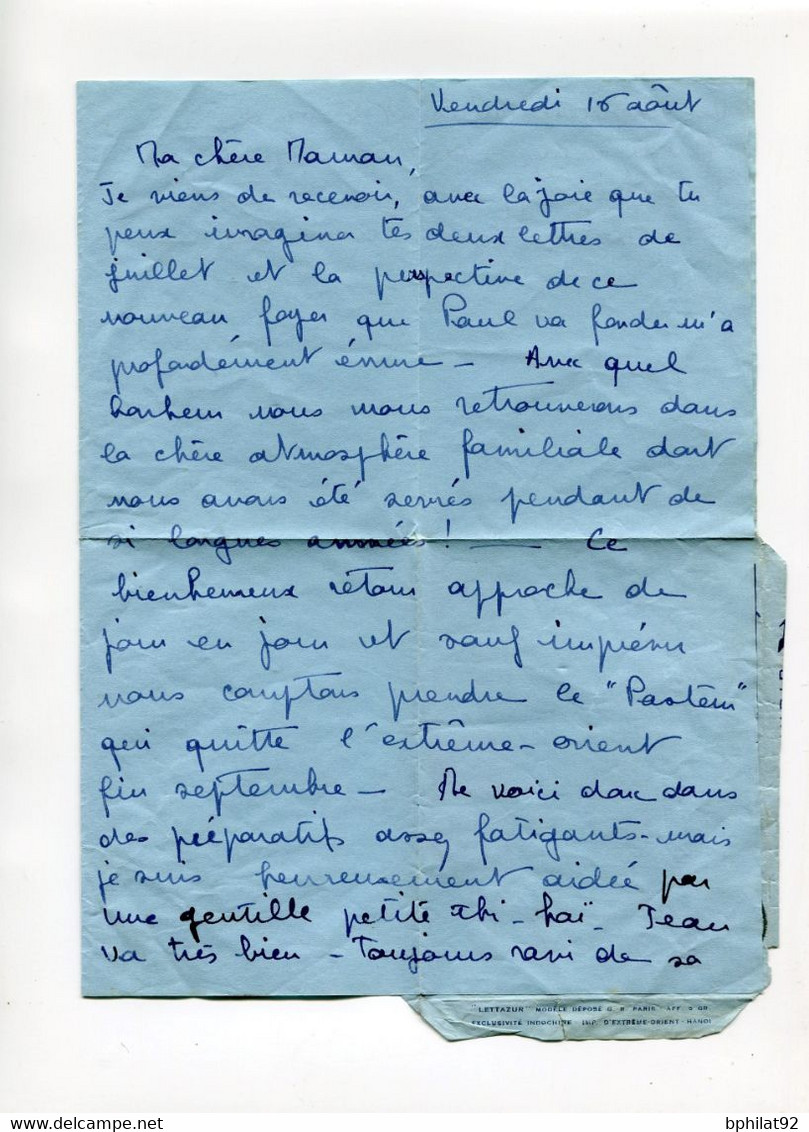 Vendredi 16 août
Ma chère Maman,
Je viens de recevoir, avec la joie que tu
peux imaginer tes deux lettres de
juillet et la perspective de ce
nouveau foyer que Paul va fonder m'a
profondément émue — Avec quel
bonheur nous nous retrouverons dans
la chère atmosphère familiale dont
nous avons été sevrés pendant de
si longues années ! — Ce
bienheureux retour approche de
jour en jour et sauf imprévu
nous comptons prendre le "Pasteur"
qui quitte l'extrême-orient
fin septembre — Me voici donc dans
des préparatifs assez fatigants - mais
je suis heureusement aidée par
une gentille petite thi-haï - Jean
va très bien - Toujours ravi de sa
"LETTAZUR" MODÈLE DÉPOSÉ G. B. PARIS AFF. 5 GR.
EXCLUSIVITÉ INDOCHINE IMP. D'EXTRÊME-ORIENT - HANOI
bphilat92